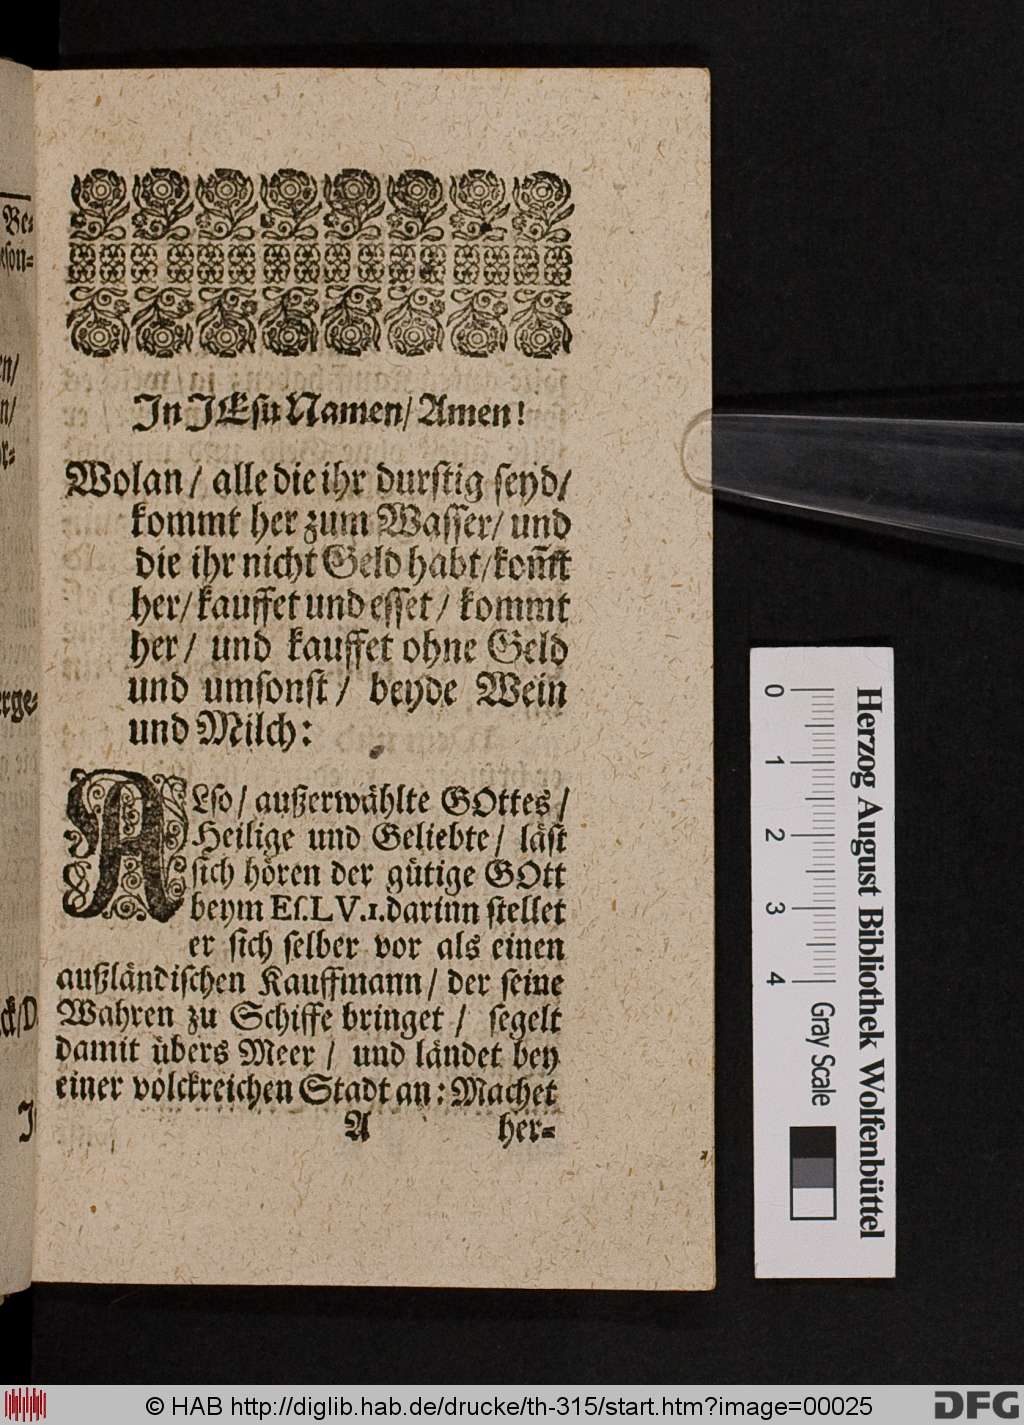 Be=
eson=
en/
n/
or=
erge=
ck/D
J
In JEsu Namen/ Amen!
Wolan/ alle die ihr durstig seyd/
kommt her zum Wasser/ und
die ihr nicht Geld habt/ kom̃t
her/ kauffet und esset/ kommt
her/ und kauffet ohne Geld
und umsonst/ beyde Wein
und Milch:
ALso/ außerwählte GOttes/
Heilige und Geliebte/ läst
sich hören der gütige GOtt
beym Eſ. LV. 1. darinn stellet
er sich selber vor als einen
außländischen Kauffmann/ der seine
Wahren zu Schiffe bringet/ segelt
damit übers Meer/ und ländet bey
einer volckreichen Stadt an: Machet
A her=
Herzog August Bibliothek Wolfenbüttel
0 1 2 3 4 Gray Scale
© HAB http://diglib.hab.de/drucke/th-315/start.htm?image=00025
DFG